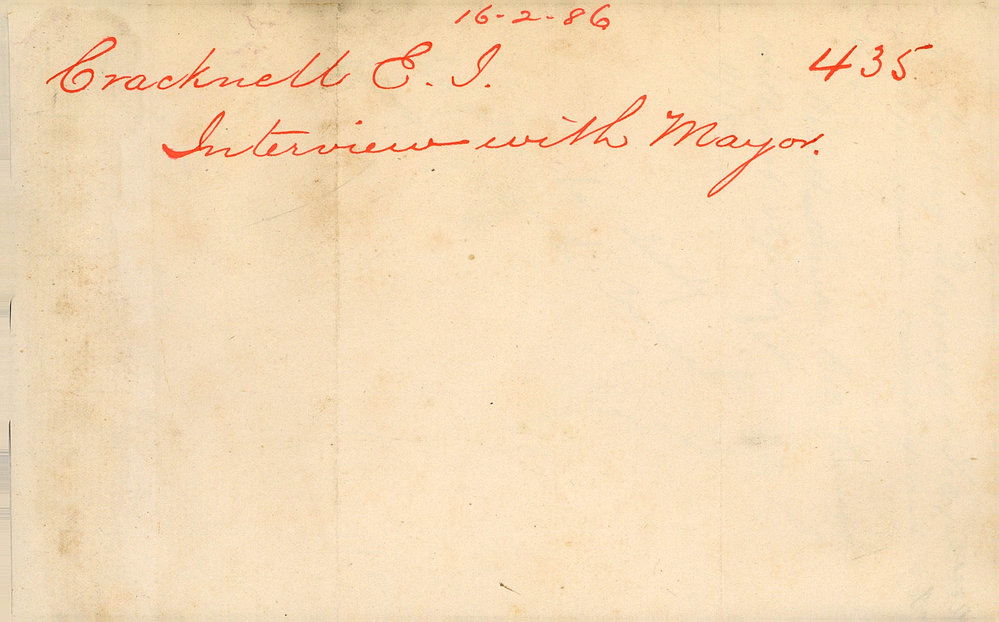 16-2-86
Cracknell E. I. 435
Interview with Mayor.